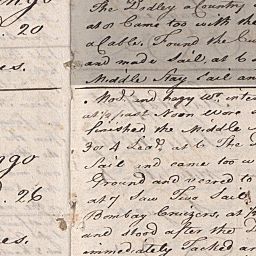 ngo
. 20
es.
The Dedley a Country
at 8 Came too with the
a Cable. Found the
and made Sail, at 6
Middle Stay Sail an
Modt. and hazy Wr. inte
at ½ past Noon Wore
finished the Middle
3 or 4 Leags. at 6 The
Sail and came too w
Ground and veered to
at 7 Saw Two Sail
Bombay Cruizers, at
and stood after the
immediately Tacked an
ngo
. 26
es.